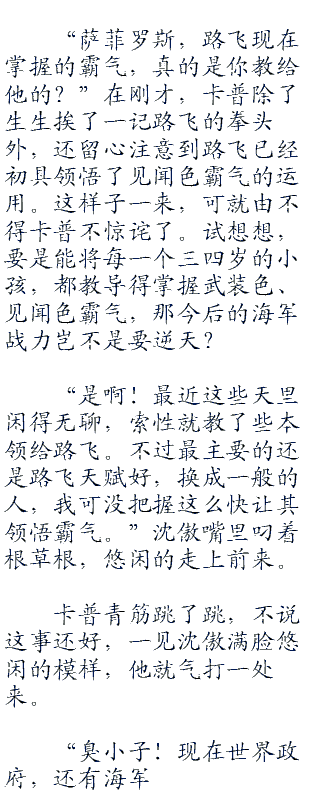 “萨菲罗斯，路飞现在
掌握的霸气，真的是你教给
他的？”在刚才，卡普除了
生生挨了一记路飞的拳头
外，还留心注意到路飞已经
初具领悟了见闻色霸气的运
用。这样子一来，可就由不
得卡普不惊诧了。试想想，
要是能将每一个三四岁的小
孩，都教导得掌握武装色、
见闻色霸气，那今后的海军
战力岂不是要逆天？
“是啊！最近这些天里
闲得无聊，索性就教了些本
领给路飞。不过最主要的还
是路飞天赋好，换成一般的
人，我可没把握这么快让其
领悟霸气。”沈傲嘴里叼着
根草根，悠闲的走上前来。
卡普青筋跳了跳，不说
这事还好，一见沈傲满脸悠
闲的模样，他就气打一处
来。
“臭小子！现在世界政
府，还有海军